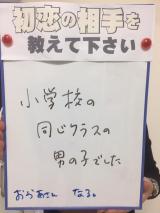 初恋の相手を
教えて下さい
小学校の
同じクラスの
男の子でした
おかあさん なる。